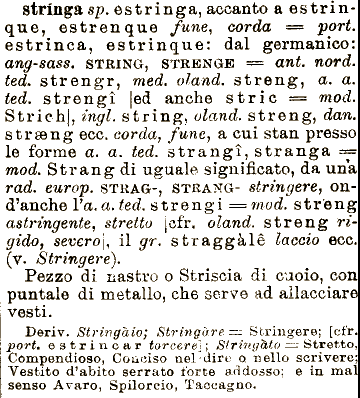 stringa sp. estringa, accanto a estrin-
que, estrenque fune, corda = port.
estrinca, estrinque: dal germanico:
ang-sass. STRING, STRENGE = ant. nord.
ted. strengr, med. oland. streng, a. a.
ted. strengî [ed anche stric = mod.
Strich], ingl. string, oland. streng, dan.
stræng ecc. corda, fune, a cui stan presso
le forme a. a. ted. strangî, stranga =
mod. Strang di uguale significato, da una
rad. europ. STRAG-, STRANG- stringere, on-
d'anche l'a. a. ted. strengi = mod. streng
astringente, stretto [cfr. oland. streng ri-
gido, severo], il gr. straggàlê laccio ecc.
(v. Stringere).
Pezzo di nastro o Striscia di cuoio, con
puntale di metallo, che serve ad allacciare
vesti.
Deriv. Stringàio; Stringàre = Stringere; [cfr.
port. estrincar torcere]; Stringàto = Stretto,
Compendioso, Conciso nel dire o nello scrivere;
Vestito d'abito serrato forte addosso; e in mal
senso Avaro, Spilorcio, Taccagno.